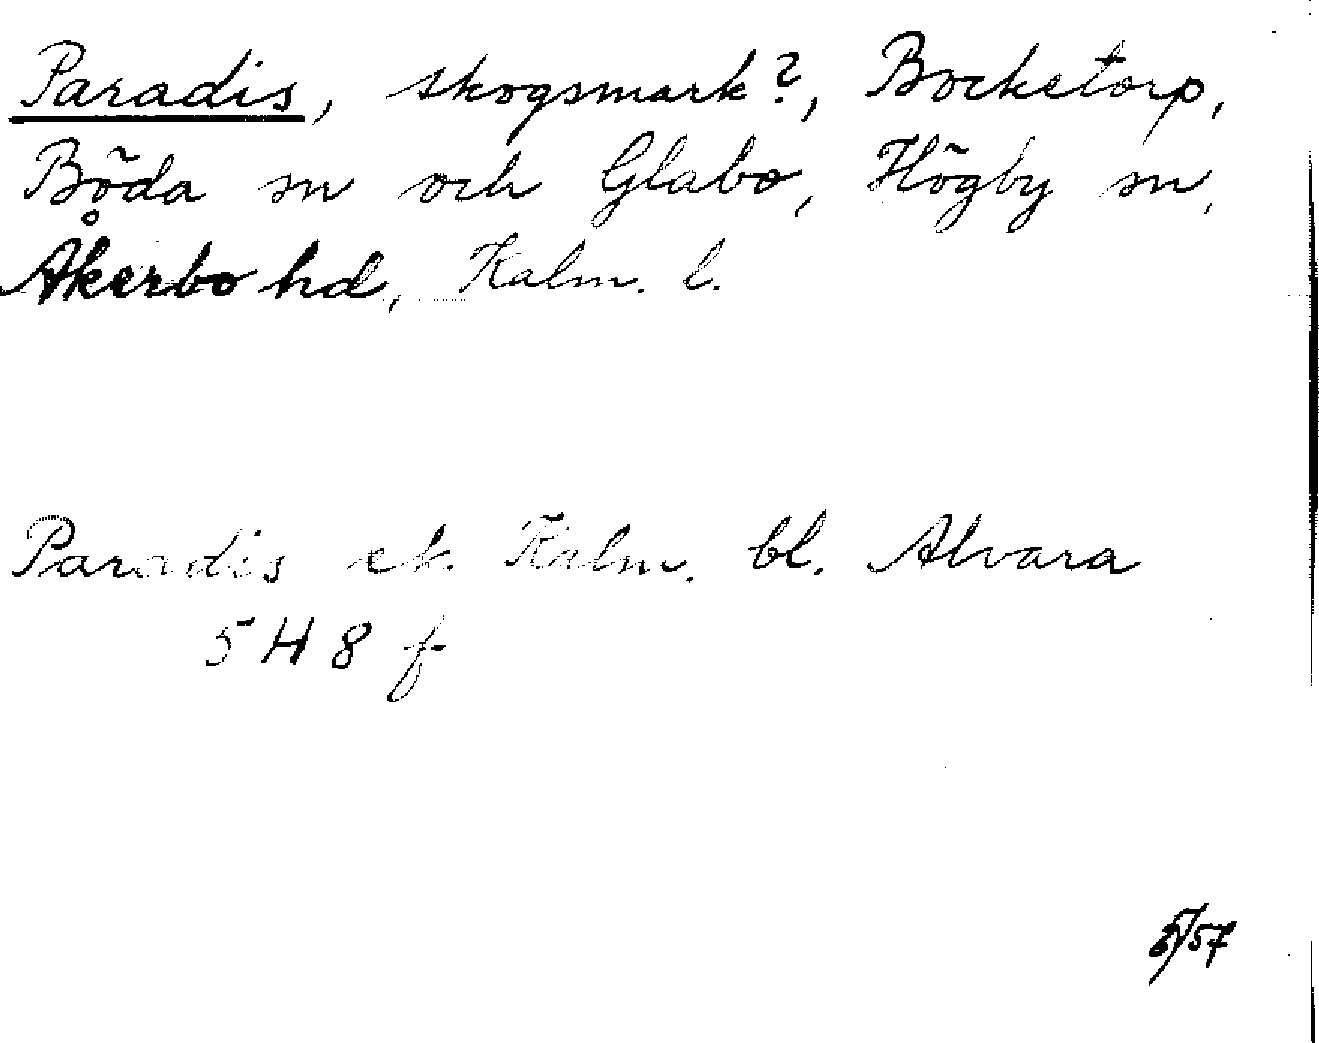 Paradis, skogsmark?, Bocketorp,
Böda sn och Glabo, Högby sn,
Åkerbo hd, Kalm. l.
Paradis ek. Kalm. bl. Alvara
5 H 8 f